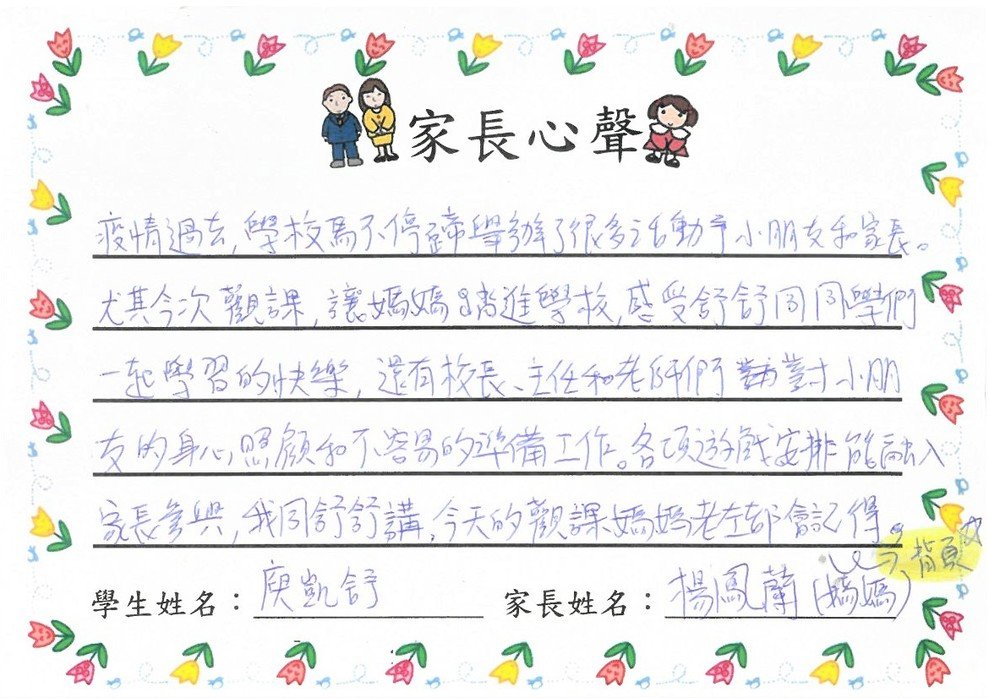 家長心聲
疫情過去，學校馬不停蹄舉辦了很多活動予小朋友和家長。
尤其今次觀課，讓媽媽踏進學校，感受舒舒同同學們
一起學習的快樂，還有校長、主任和老師們對小朋
友的身心照顧和不容易的準備工作。各項遊戲安排能融入
家長參與，我同舒舒講，今天的觀課媽媽老左都會記得。
背頁
學生姓名：庾凱舒 家長姓名：楊鳳蘭(媽媽)